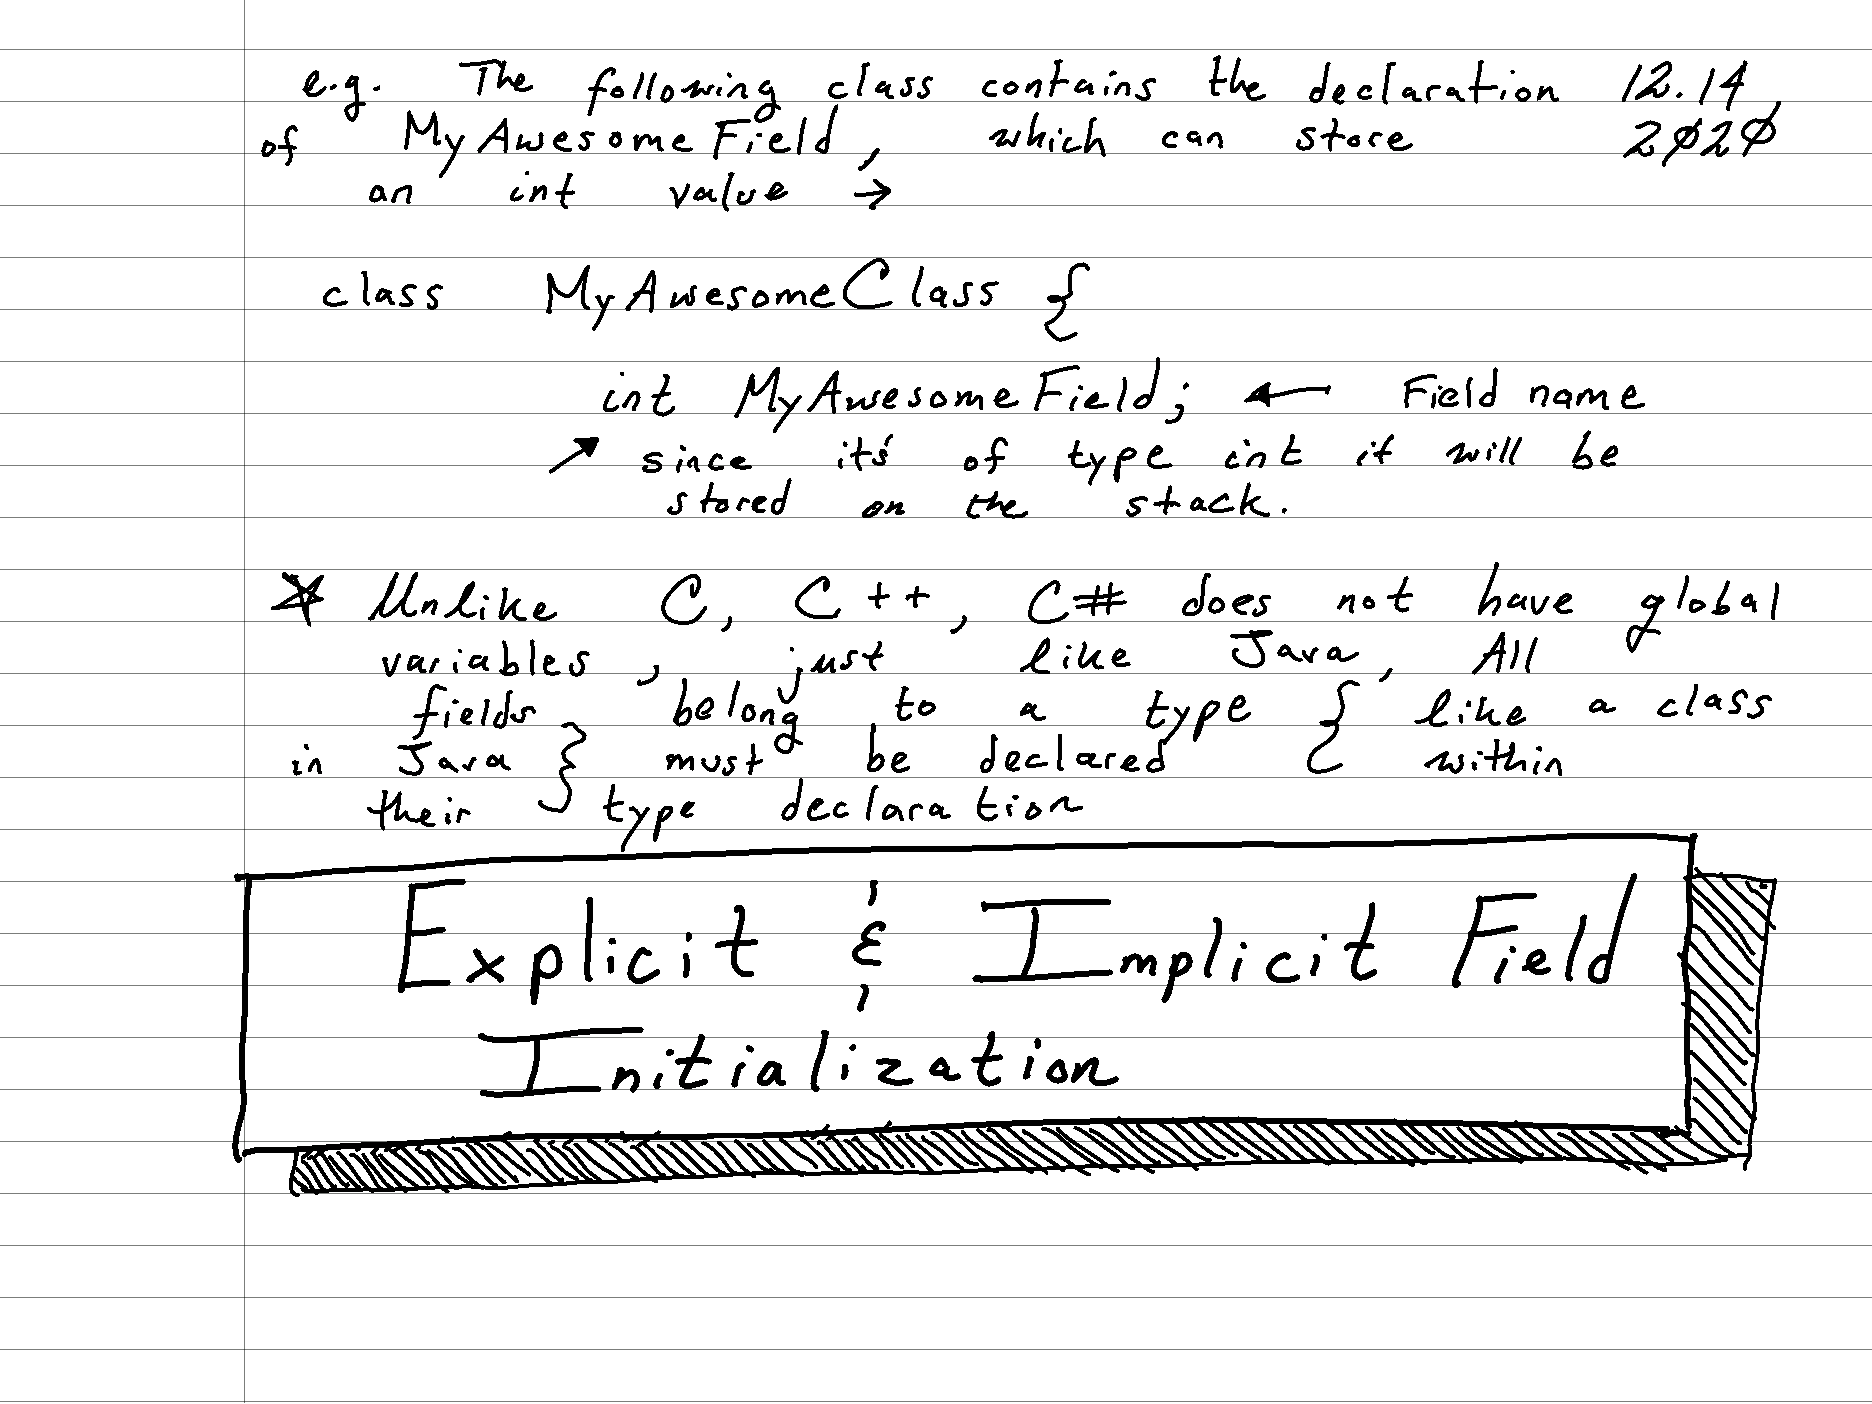 e.g. The following class contains the declaration 12.14,
of MyAwesomeField, which can store 2020
an int value →
class MyAwesomeClass {
int MyAwesomeField; ← Field name
↗ since it's of type int it will be
stored on the stack.
☆ Unlike C, C++, C# does not have global
variables, just like Java, All
fields belong to a type { like a class
in Java } must be declared within
their type declaration
Explicit & Implicit Field
Initialization